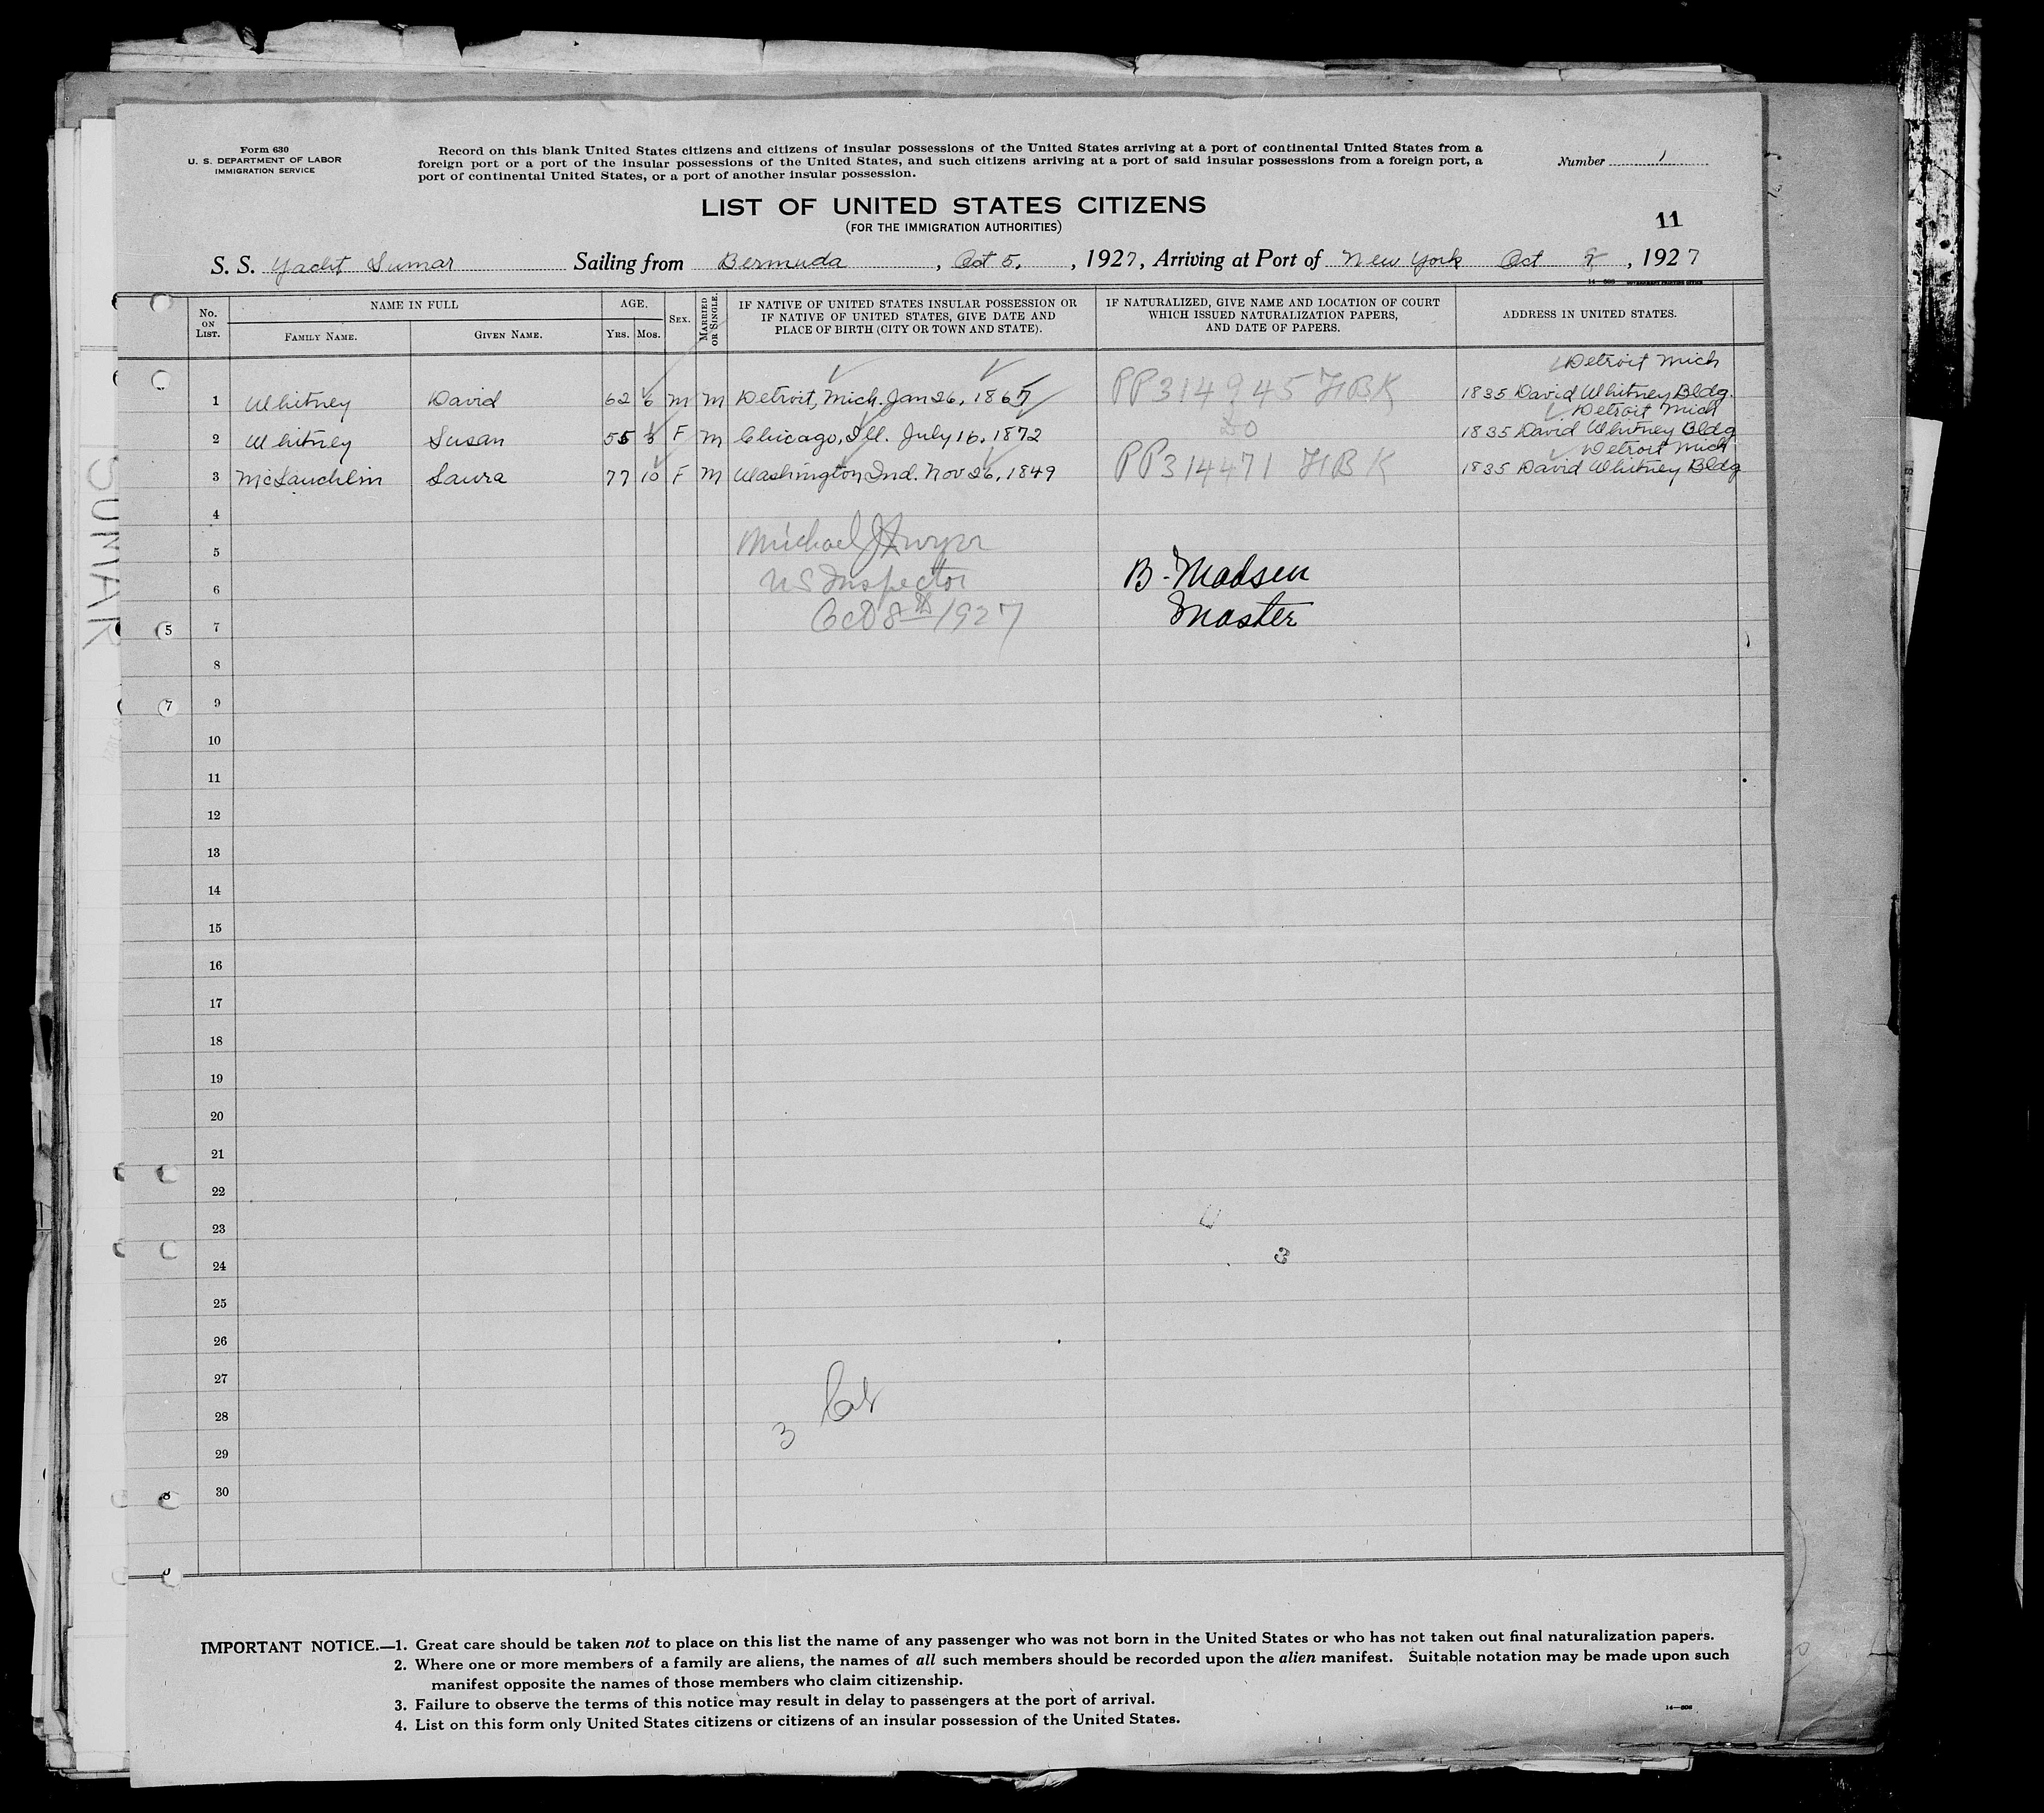 Form 630
U. S. DEPARTMENT OF LABOR
IMMIGRATION SERVICE
Record on this blank United States citizens and citizens of insular possessions of the United States arriving at a port of continental United States from a
foreign port or a port of the insular possessions of the United States, and such citizens arriving at a port of said insular possessions from a foreign port, a
port of continental United States, or a port of another insular possession.
Number 1
LIST OF UNITED STATES CITIZENS
(FOR THE IMMIGRATION AUTHORITIES)
11
S. S. Yacht Sumar Sailing from Bermuda, Oct 5, , 1927, Arriving at Port of New York Oct 8, 1927
No. ON LIST.
NAME IN FULL
FAMILY NAME. GIVEN NAME.
AGE.
YRS. MOS.
SEX.
MARRIED OR SINGLE.
IF NATIVE OF UNITED STATES INSULAR POSSESSION OR
IF NATIVE OF UNITED STATES, GIVE DATE AND
PLACE OF BIRTH (CITY OR TOWN AND STATE).
IF NATURALIZED, GIVE NAME AND LOCATION OF COURT
WHICH ISSUED NATURALIZATION PAPERS,
AND DATE OF PAPERS.
ADDRESS IN UNITED STATES.
Detroit Mich
1 Whitney David 62 6 M M Detroit, Mich. Jan 26, 1865 PP314945 HBK 1835 David Whitney Bldg.
Detroit Mich
2 Whitney Susan 55 F M Chicago, Ill. July 16, 1872 DO 1835 David Whitney Bldg
Detroit Mich
3 McLauchlin Laura 77 10 F M Washington, Ind. Nov 26, 1849 PP314471 HBK 1835 David Whitney Bldg
4
5 Michael J Dwyer
6 US Inspector B. Madsen
7 Oct 8th 1927 Master
8
9
10
11
12
13
14
15
16
17
18
19
20
21
22
23
24
25
26
27
28
3
29
30
SUMAR
5
7
IMPORTANT NOTICE.—1. Great care should be taken not to place on this list the name of any passenger who was not born in the United States or who has not taken out final naturalization papers.
2. Where one or more members of a family are aliens, the names of all such members should be recorded upon the alien manifest. Suitable notation may be made upon such
manifest opposite the names of those members who claim citizenship.
3. Failure to observe the terms of this notice may result in delay to passengers at the port of arrival.
4. List on this form only United States citizens or citizens of an insular possession of the United States.